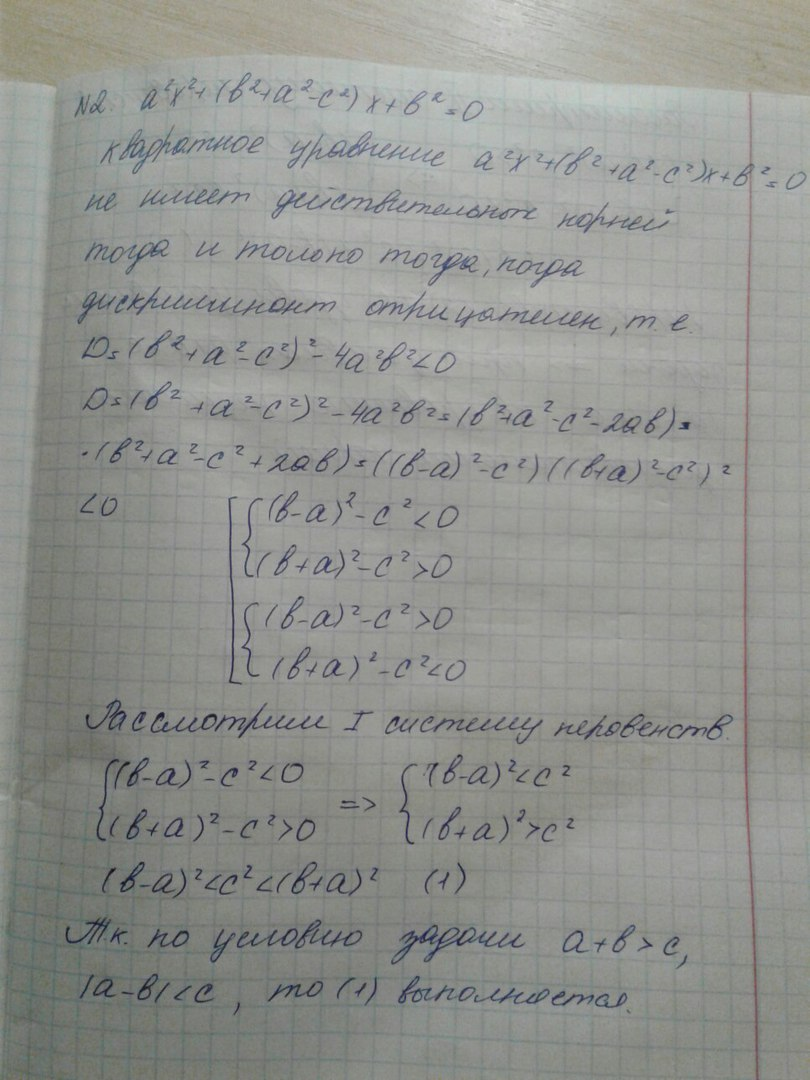 №2. a²x²+(b²+a²-c²)x+b²=0
квадратное уравнение a²x²+(b²+a²-c²)x+b²=0
не имеет действительных корней
тогда и только тогда, когда
дискриминант отрицателен, т. е.
D=(b²+a²-c²)²-4a²b²<0
D=(b²+a²-c²)²-4a²b²=(b²+a²-c²-2ab)·
·(b²+a²-c²+2ab)=((b-a)²-c²)((b+a)²-c²)²
<0 (b-a)²-c²<0
(b+a)²-c²>0
(b-a)²-c²>0
(b+a)²-c²<0
Рассмотрим I систему неравенств.
(b-a)²-c²<0 (b-a)²<c²
(b+a)²-c²>0 => (b+a)²>c²
(b-a)²<c²<(b+a)² (1)
Т.к. по условию задачи a+b>c,
|a-b|<c, то (1) выполняется.